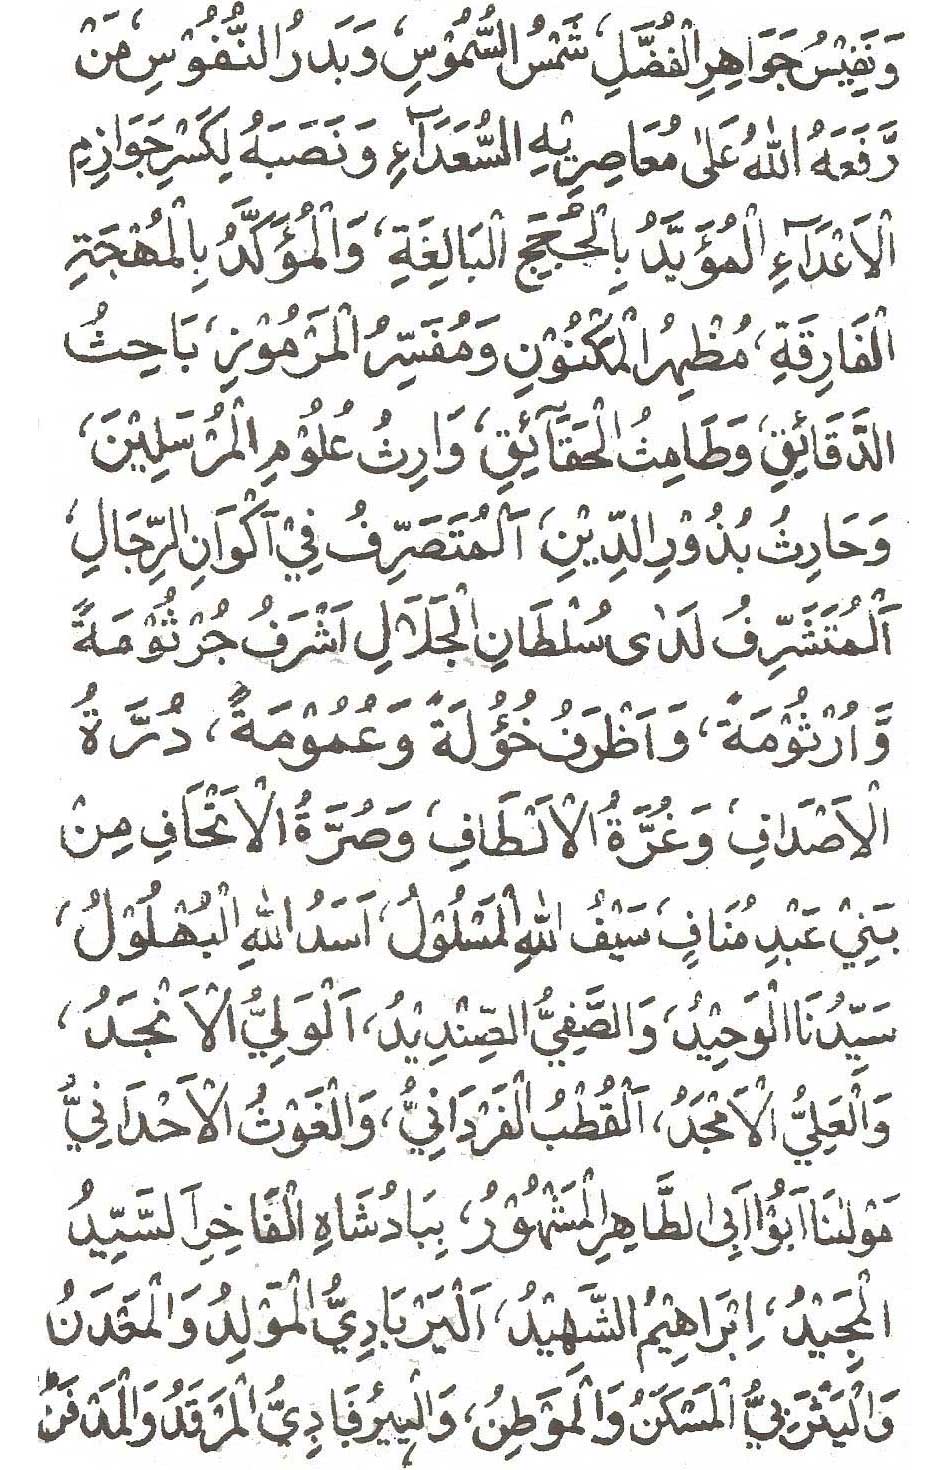 وَنَفِيْسُ جَوَاهِرِ الْفُضَّلِ، شَمْسُ السُّمُوْسِ، وَبَدَرُ النُّفُوْسِ، مَنْ
رَّفَعَهُ اللهُ عَلىٰ مُعَاصِرِيْهِ السُّعَدَآءِ وَنَصَبَهُ لِكَسْرِ جَوَازِمِ
الْاَعْدَآءِ الْمُؤَيَّدُ بِالْحُجَجِ الْبَالِغَةِ، وَالْمُؤَكَّدُ بِالْمُهْجَتِهِ
الْفَارِقَةِ، مُظْهِرُ الْمَكْنُوْنِ وَمُفَسِّرُ الْمَرْمُوْزِ، بَاحِثُ
الدَّقَائِقِ، وَطَامِثُ الْحَقَآئِقِ، وَارِثُ عُلُوْمِ الْمُرْسَلِيْنَ،
وَحَارِثُ بُذُوْرِ الدِّيْنِ، اَلْمُتَصَرِّفُ فِيْ اَكْوَانِ الرِّجَالِ،
اَلْمُتَشَرِّفُ لَدٰى سُلْطَانِ الْجَلَالِ اَشْرَفُ جُرْثُوْمَةً
وَّاُرْثُوْمَةً، وَاَظْرَفُ خُؤُلَةً وَعُمُوْمَةً، دُرَّةُ
الْاَصْدَافِ، وَغُرَّةُ الْاَلْطَافِ، وَصُرَّةُ الْاَتْحَافِ مِنْ
بَنِيْ عَبْدِ مُنَافٍ، سَيْفُ اللهِ الْمَسْلُوْلُ، اَسَدُ اللهِ الْبُهْلُوْلُ،
سَيِّدُنَا الْوَحِيْدُ، وَالصَّفِيُّ الصِّنْدِيْدُ، اَلْوَلِيُّ الْاَنْجَدُ،
وَالْعَلِيُّ الْاَمْجَدُ، اَلْقُطْبُ الْفَرْدَانِيُّ، وَالْغَوْثُ الْاَحْدَانِيُّ
مَوْلٰنَا اَبُوْ اَبِى الطَّاهِرِ الْمَشْهُوْرُ، بِبَادُشَاهِ الْفَاخِرِ اَلسَّيِّدِ
الْمَجِيْدُ، اِبْرَاهِيْمُ الشَّهِيْدُ، اَلْيَرْبَادِيُّ الْمَوْلِدُ وَالْمَعْدَنُ
وَالْيَثْرَبِيُّ الْمَسْكَنُ وَالْمَوَطِنُ، وَالْيِيْرْفَادِيُّ الْمَرْقَدُ وَالْمَدْفَنُ